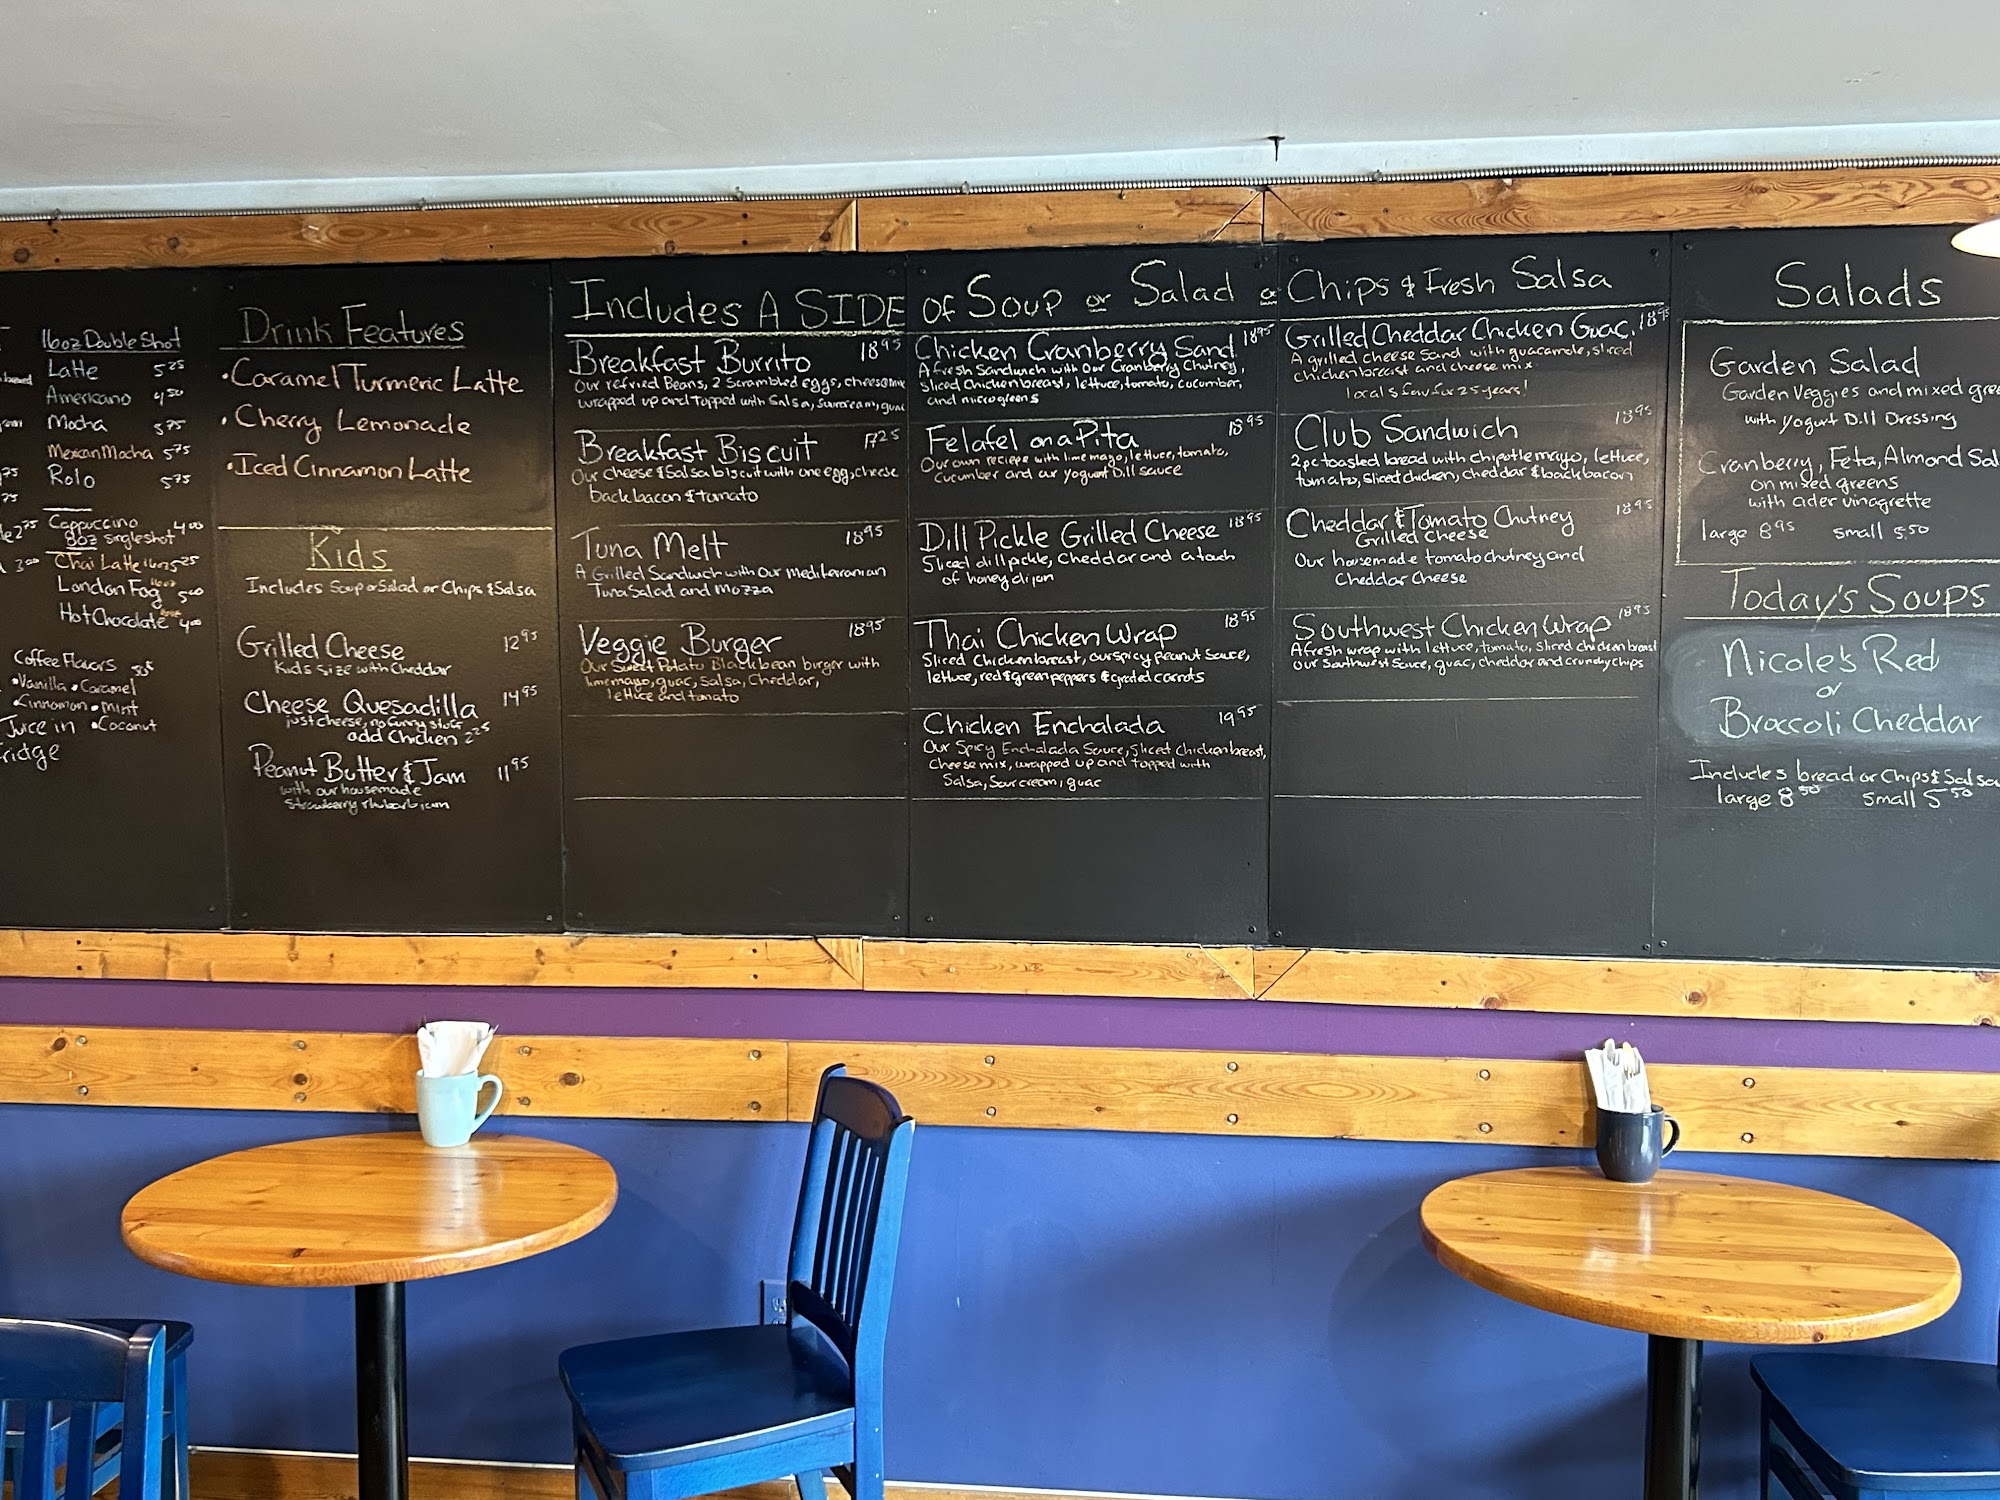 16oz Double Shot
Latte 5.25
Americano 4.50
Mocha 5.75
Mexican Mocha 5.75
Rolo 5.75
Cappuccino 4.00
8oz single shot
3.00 Chai Latte 16oz 5.25
London Fog 16oz 5.00
Hot Chocolate 4.00
Coffee Flavors
• Vanilla • Caramel
• Cinnamon • mint
Juice in • Coconut
Fridge
Drink Features
• Caramel Turmeric Latte
• Cherry Lemonade
• Iced Cinnamon Latte
Kids
Includes Soup or Salad or Chips & Salsa
Grilled Cheese 12.95
Kids size with Cheddar
Cheese Quesadilla 14.95
just cheese, no funny stuff
add Chicken 2.25
Peanut Butter & Jam 11.95
with our housemade
Strawberry rhubarb jam
Includes A SIDE of Soup or Salad or Chips & Fresh Salsa
Breakfast Burrito 18.95
Our refried Beans, 2 Scrambled eggs, cheese mix
wrapped up and topped with Salsa, Sourcream, guac
Breakfast Biscuit 17.25
Our cheese & Salsa biscuit with one egg, cheese
back bacon & tomato
Tuna Melt 18.95
A Grilled Sandwich with Our mediterranian
Tuna Salad and Mozza
Veggie Burger 18.95
Our Sweet Potato Black bean burger with
lime mayo, guac, Salsa, Cheddar,
lettuce and tomato
Chicken Cranberry Sand 18.95
A fresh Sandwich with Our Cranberry Chutney,
Sliced Chicken breast, lettuce, tomato, cucumber,
and microgreens
Felafel on a Pita 18.95
Our own reciepe with lime mayo, lettuce, tomato,
cucumber and our yogurt Dill sauce
Dill Pickle Grilled Cheese 18.95
Sliced dill pickle, Cheddar and a touch
of honey dijon
Thai Chicken Wrap 18.95
Sliced Chicken breast, our spicy peanut Sauce,
lettuce, red & green peppers & grated carrots
Chicken Enchalada 19.95
Our Spicy Enchalada Sauce, Sliced chicken breast,
Cheese mix, wrapped up and topped with
Salsa, Sour cream, guac
Grilled Cheddar Chicken Guac. 18.95
A grilled cheese Sand with guacamole, sliced
chicken breast and cheese mix.
locals fav for 25 years!
Club Sandwich 18.95
2pc toasted bread with chipotle mayo, lettuce,
tomato, Sliced chicken, cheddar & back bacon
Cheddar & Tomato Chutney 18.95
Grilled Cheese
Our housemade tomato chutney and
Cheddar Cheese
Southwest Chicken Wrap 18.95
A fresh wrap with lettuce, tomato, sliced chicken breast
Our Southwest Sauce, guac, cheddar and crunchy chips
Salads
Garden Salad
Garden Veggies and mixed gree
with yogurt Dill Dressing
Cranberry, Feta, Almond Sal
on mixed greens
with cider vinagrette
large 8.95 small 5.50
Today's Soups
Nicole's Red
or
Broccoli Cheddar
Includes bread or Chips & Salsa
large 8.50 small 5.50